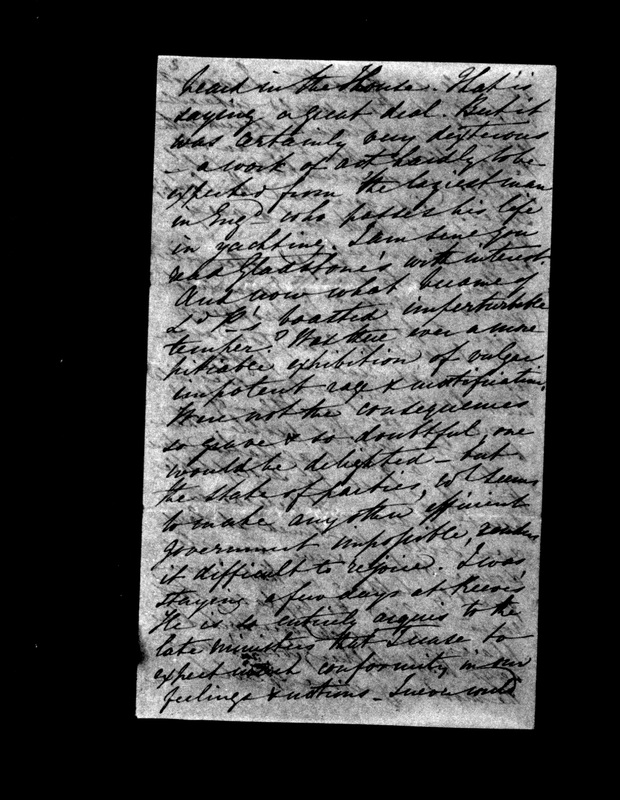 3
heard in the House. That is
saying a great deal. But it
was certainly very dexterous
– a work of art hardly to be
expected from the laziest man
in Engd. who passes his life
in yachting. I am sure you
read Gladstone's with interest.
And now what becomes of
Ld P's boasted imperturbable
temper? Was there ever a more
pitiable exhibition of vulgar
impotent rage & mortification.
Were not the consequences
so grave & so doubtful one
would be delighted – but
the state of parties, wh seems
to make any other efficient
government impossible, renders
it difficult to rejoice. I was
staying a few days at
He is so entirely acquis to the
late ministers that I cease to
expect much conformity in our
feelings & notions – I never could